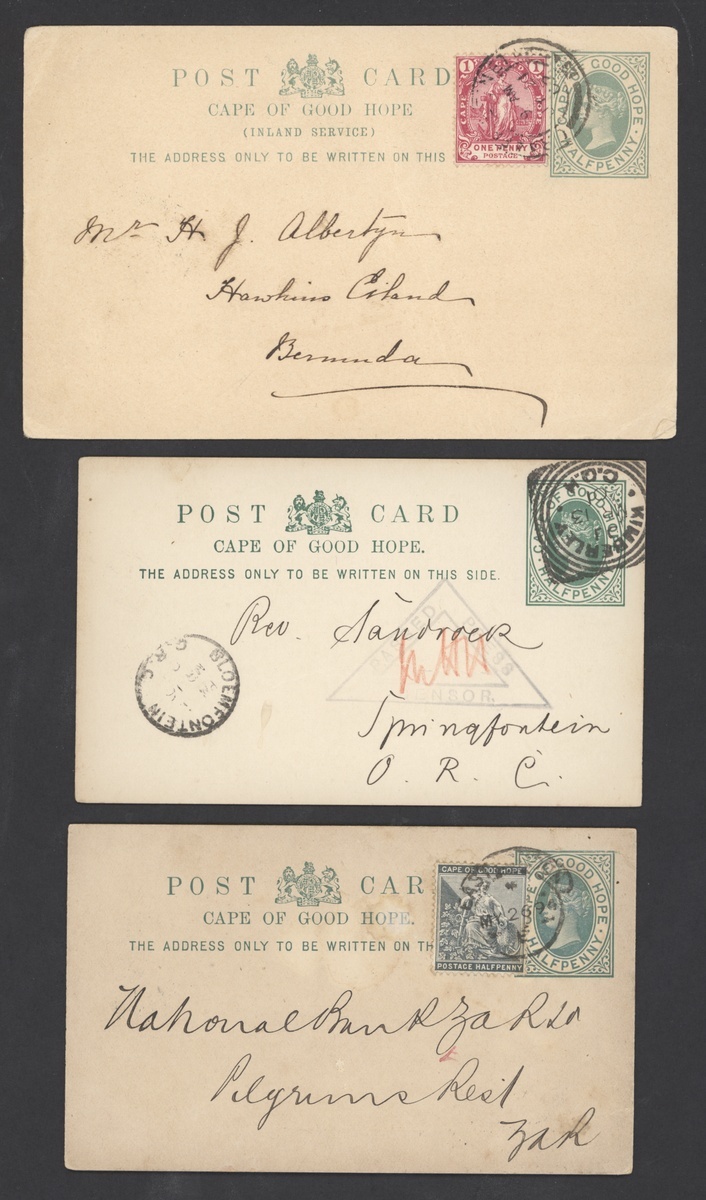 POST CARD
CAPE OF GOOD HOPE
(INLAND SERVICE)
THE ADDRESS ONLY TO BE WRITTEN ON THIS
1 1
CAPE OF GOOD HOPE
ONE PENNY
POSTAGE
CAPE GOOD HOPE
HALFPENNY
Mr H J. Albertyn
Hawkins Eiland
Bermuda
POST CARD
CAPE OF GOOD HOPE.
THE ADDRESS ONLY TO BE WRITTEN ON THIS SIDE.
OF GOOD
HALFPENNY
KIMBERLEY
C.G.H.
Rev. Sandrock
PASSED PRESS
CENSOR.
BLOEMFONTEIN
O.R.C.
Springfontein
O. R. C.
POST CAR
CAPE OF GOOD HOPE.
THE ADDRESS ONLY TO BE WRITTEN ON TH
CAPE OF GOOD HOPE
POSTAGE HALFPENNY
MY 26
OF GOOD HOPE
HALFPENNY
National Bank ZAR Ld
Pilgrims Rest
ZAR